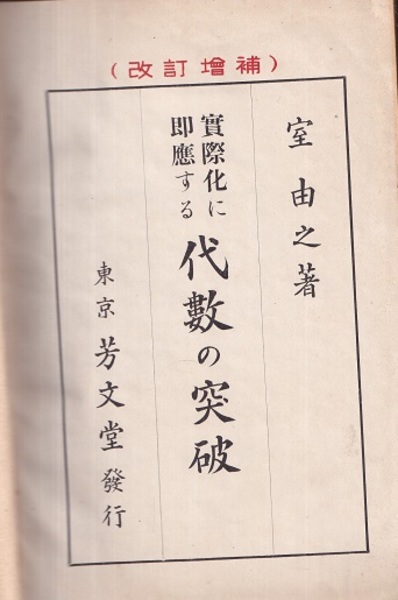 （補增訂改）
室由之著
實際化に
即應する
代數の突破
東京 芳文堂 發行